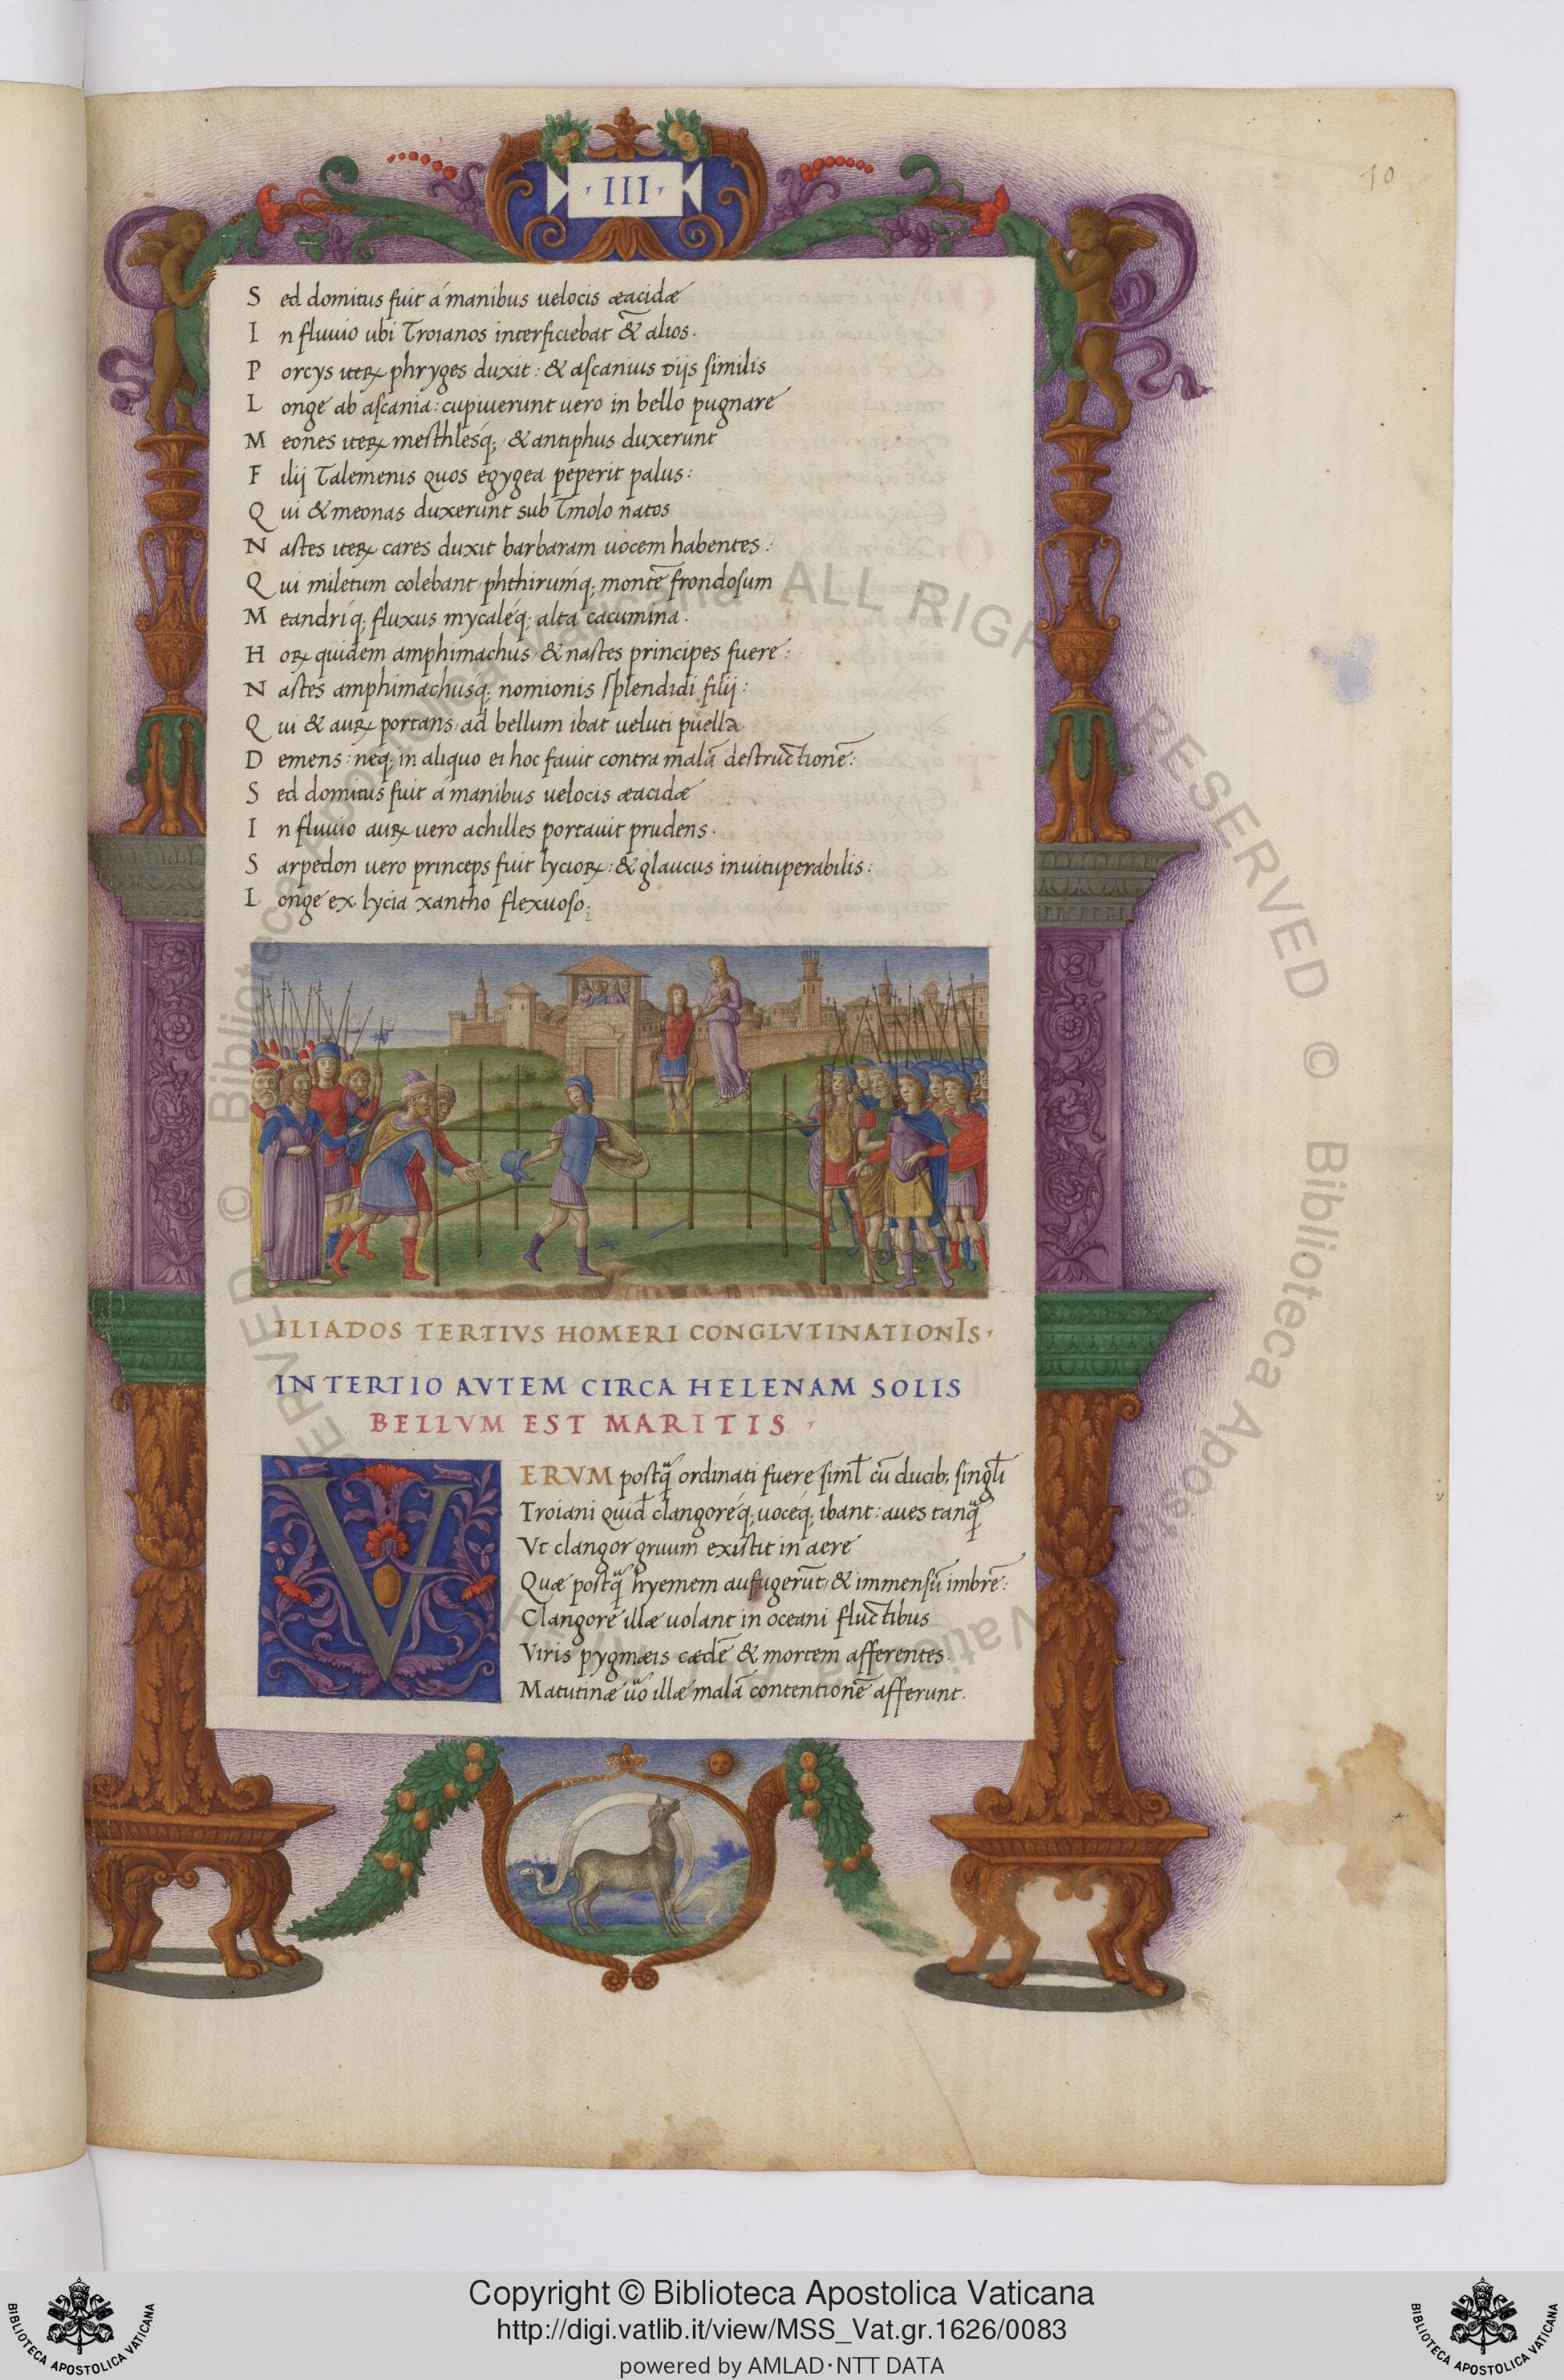 10
· III ·
S ed domitus fuit á manibus uelocis æacidæ
I n fluuio ubi Troianos interficiebat & alios.
P orcys iterꝝ phryges duxit: & ascanius Dijs similis
L onge ab ascania: cupiuerunt uero in bello pugnare
M eones iterꝝ mesthlesq́; & antiphus duxerunt
F ilij Talemenis quos egygea peperit palus:
Q ui & meonas duxerunt sub Tmolo natos
N astes iterꝝ cares duxit barbaram uocem habentes:
Q ui miletum colebant phthirumq́; montē frondosum
M eandriq́; fluxus mycaleq́; alta cacumina.
H oꝝ quidem amphimachus & nastes principes fuere:
N astes amphimachusq; nomionis splendidi filij:
Q ui & auꝝ portans ad bellum ibat ueluti puella
D emens: neq; in aliquo ei hoc fauit contra malā destructionē:
S ed domitus fuit á manibus uelocis æacidæ
I n fluuio auꝝ uero achilles portauit prudens.
S arpedon uero princeps fuit lycioꝝ: & glaucus inuituperabilis:
L onge ex lycia xantho flexuoso:
ILIADOS TERTIVS HOMERI CONGLVTINATIONIS·
IN TERTIO AVTEM CIRCA HELENAM SOLIS
BELLVM EST MARITIS·
VERVM postq̃ ordinati fuere siml̄ cū ducib; singl̄i
Troiani quid̄ clangoreq́; uoceq́; ibant: aues tanq̃
Vt clangor gruum existit in aere
Quæ postq̃ hyemem aufugerūt & immensū imbrē:
Clangore illæ uolant in oceani fluctibus
Viris pygmæis cædē & mortem afferentes.
Matutinæ ũo illæ malā contentionē afferunt.
© Biblioteca Apostolica Vaticana ALL RIGHTS RESERVED © Biblioteca Apostolica Vaticana ALL RIGHTS RESERVED
Copyright © Biblioteca Apostolica Vaticana
http://digi.vatlib.it/view/MSS_Vat.gr.1626/0083
powered by AMLAD·NTT DATA
BIBLIOTECA APOSTOLICA VATICANA
BIBLIOTECA APOSTOLICA VATICANA